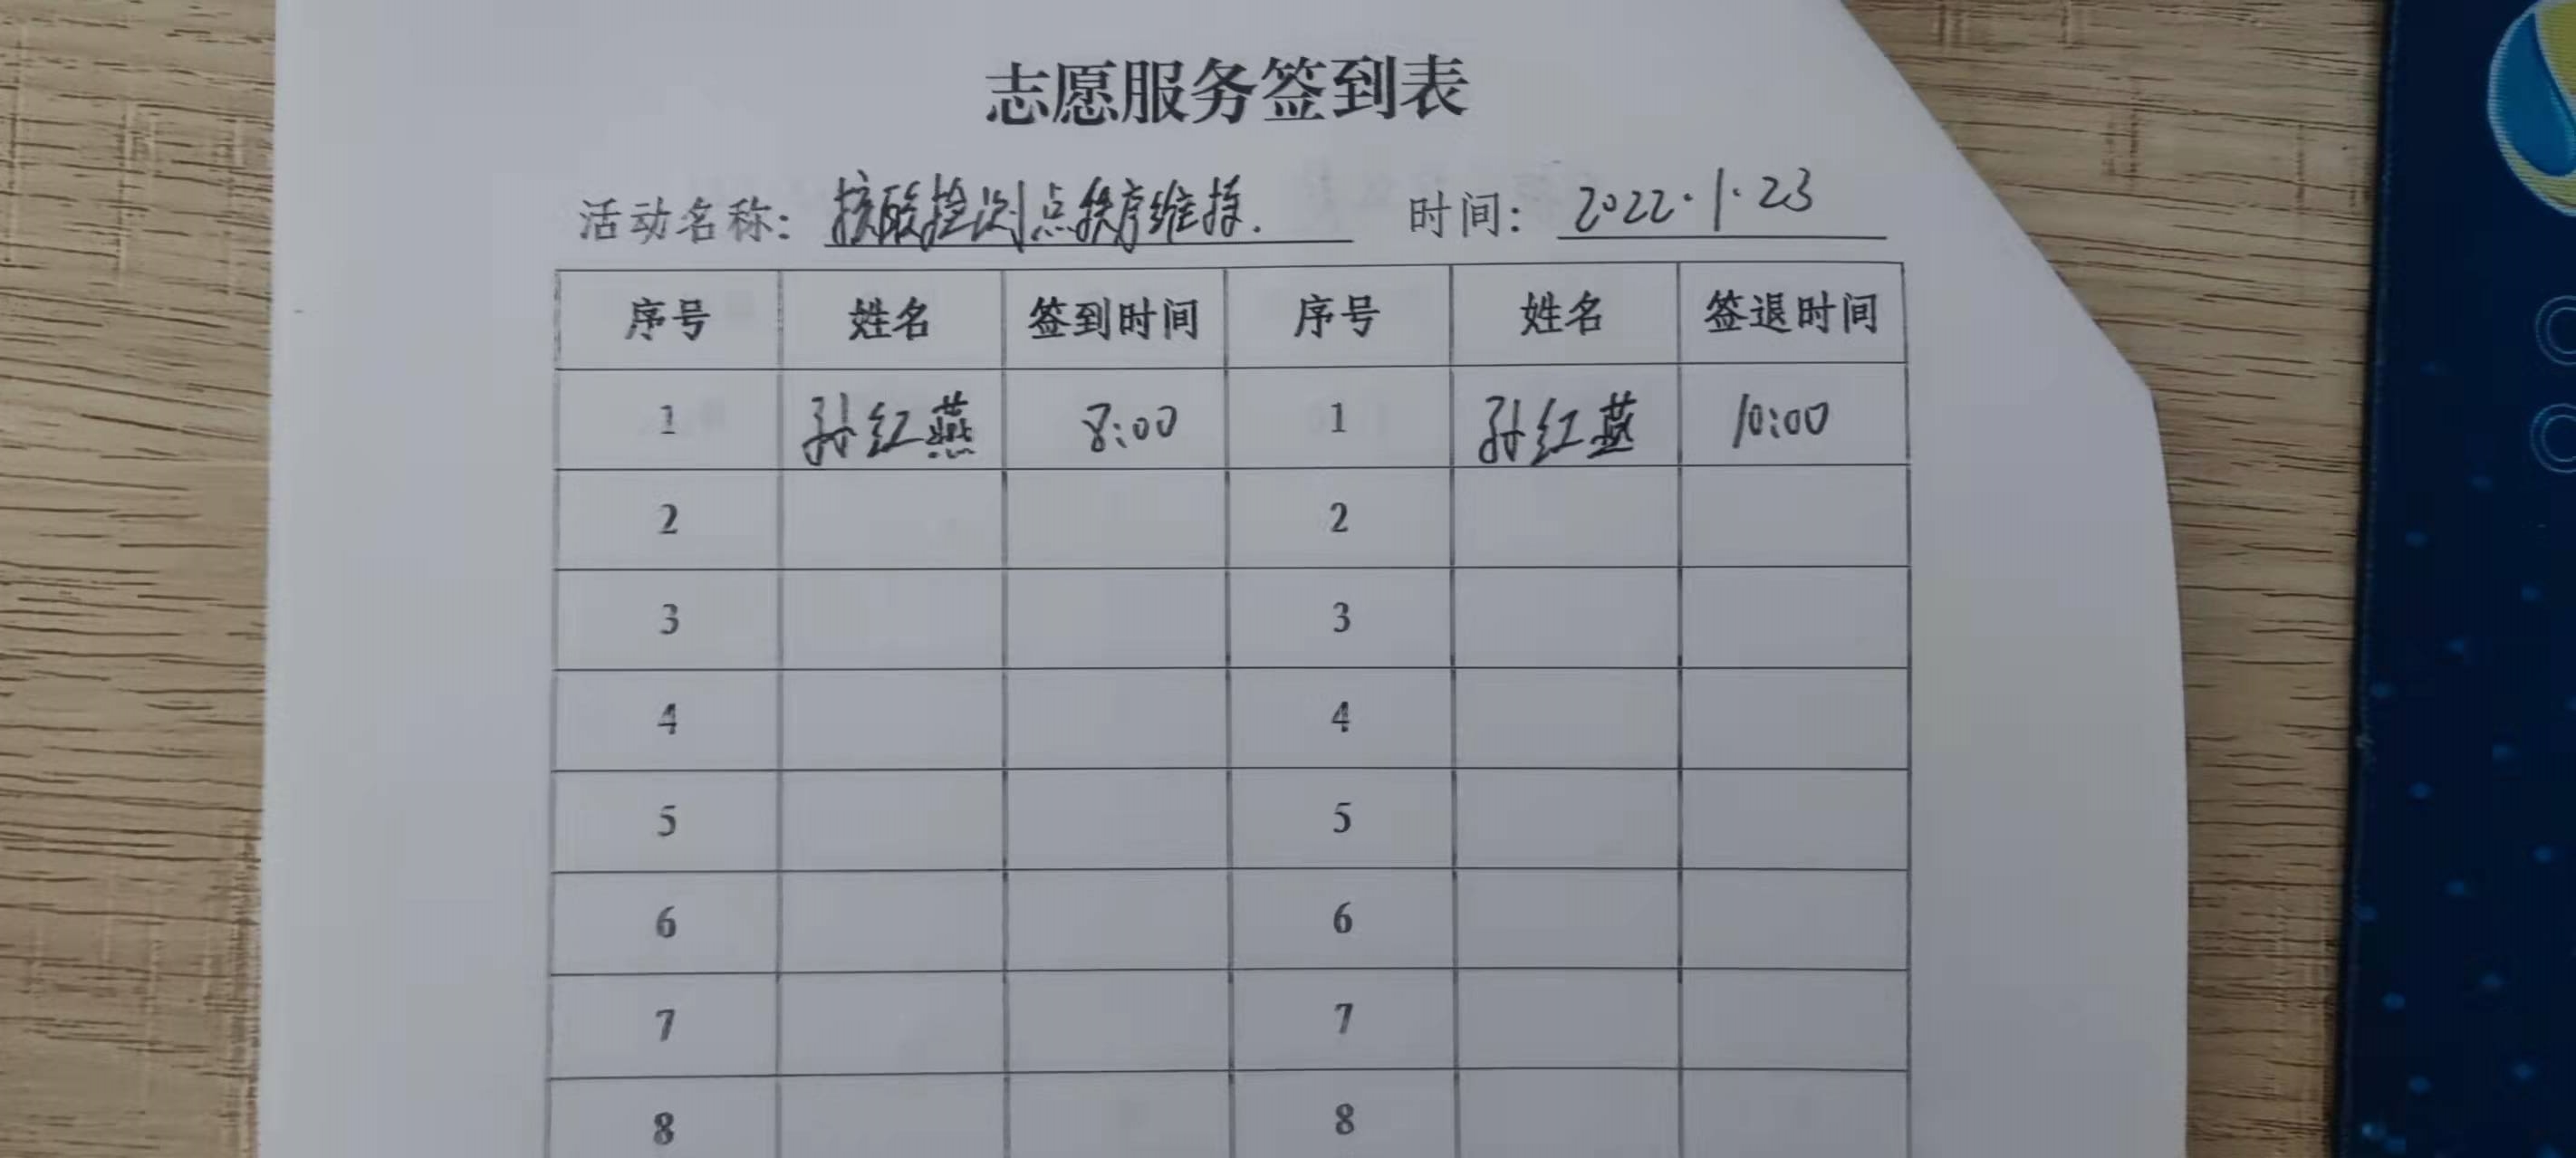 志愿服务签到表
活动名称：核酸检测点秩序维持. 时间：2022.1.23
序号 姓名 签到时间 序号 姓名 签退时间
1 孙红燕 8:00 1 孙红燕 10:00
2 2
3 3
4 4
5 5
6 6
7 7
8 8